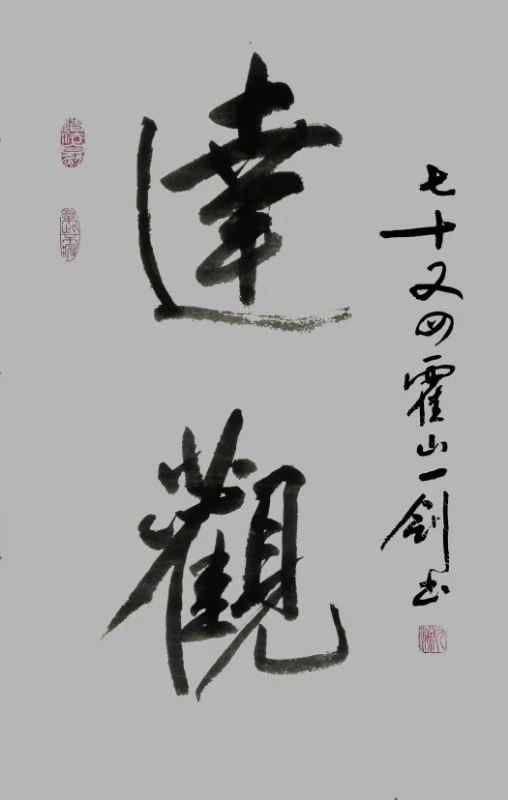 達觀
七十又四霍山一劍書